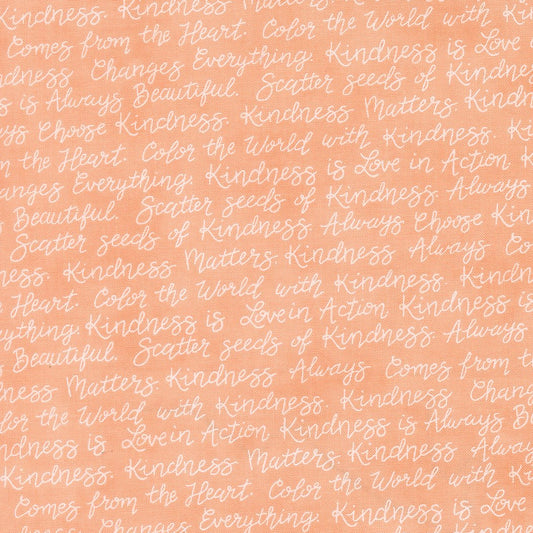 Kindness. Kindness Matters. Kindness. Always Choose Kindness.
Comes from the Heart. Color the World with Kin
dness Changes Everything. Kindness is Love in
s is Always Beautiful. Scatter seeds of Kindness.
ays Choose Kindness. Kindness Matters. Kindn
n the Heart. Color the World with Kindness. Ki
anges Everything. Kindness is Love in Action. K
Beautiful. Scatter seeds of Kindness. Always
Scatter seeds of Kindness. Always Choose Kin
ness. Kindness Matters. Kindness Always Co
e Heart. Color the World with Kindness. Kindn
ything. Kindness is Love in Action Kindness is
Beautiful. Scatter seeds of Kindness. Always
dness Matters. Kindness Always Comes from t
lor the World with Kindness. Kindness Chang
ndness is Love in Action Kindness is Always B
Kindness. Kindness Matters. Kindness. Alway
Comes from the Heart. Color the World with Ki
ness Changes Everything. Kindness is Love